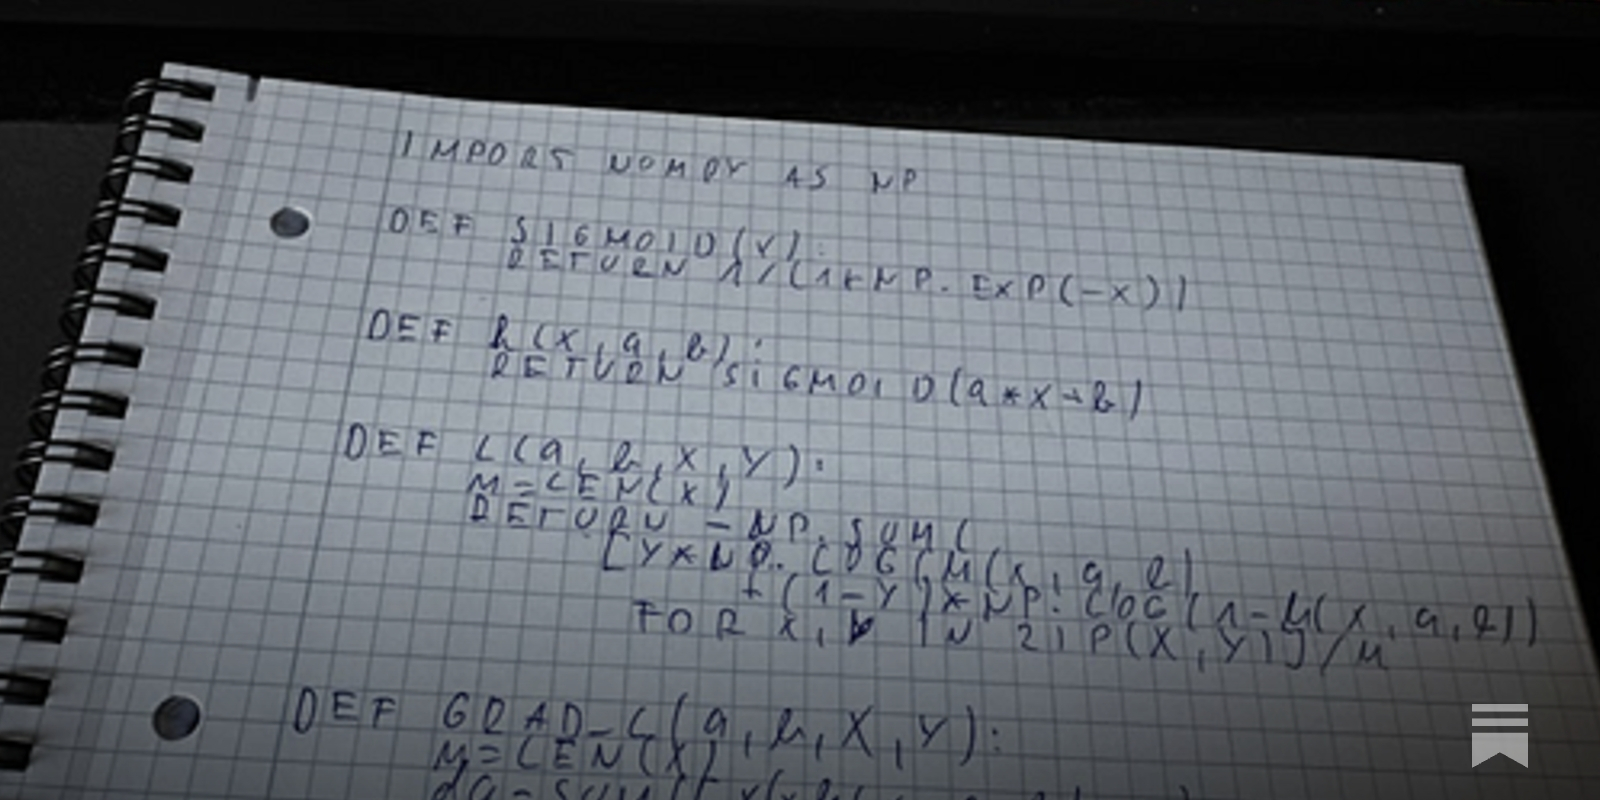 IMPORT NUMPY AS NP
DEF SIGMOID(X):
RETURN 1/(1+NP.EXP(-X))
DEF h(X, a, b):
RETURN SIGMOID(a*X+b)
DEF L(a, b, X, Y):
M=LEN(X)
RETURN -NP.SUM(
[Y*NP.LOG(h(x, a, b)
+(1-Y)*NP.LOG(1-h(x, a, b))
FOR X, Y IN ZIP(X, Y)]/M
DEF GRAD_L(a, b, X, Y):
M=LEN(X)